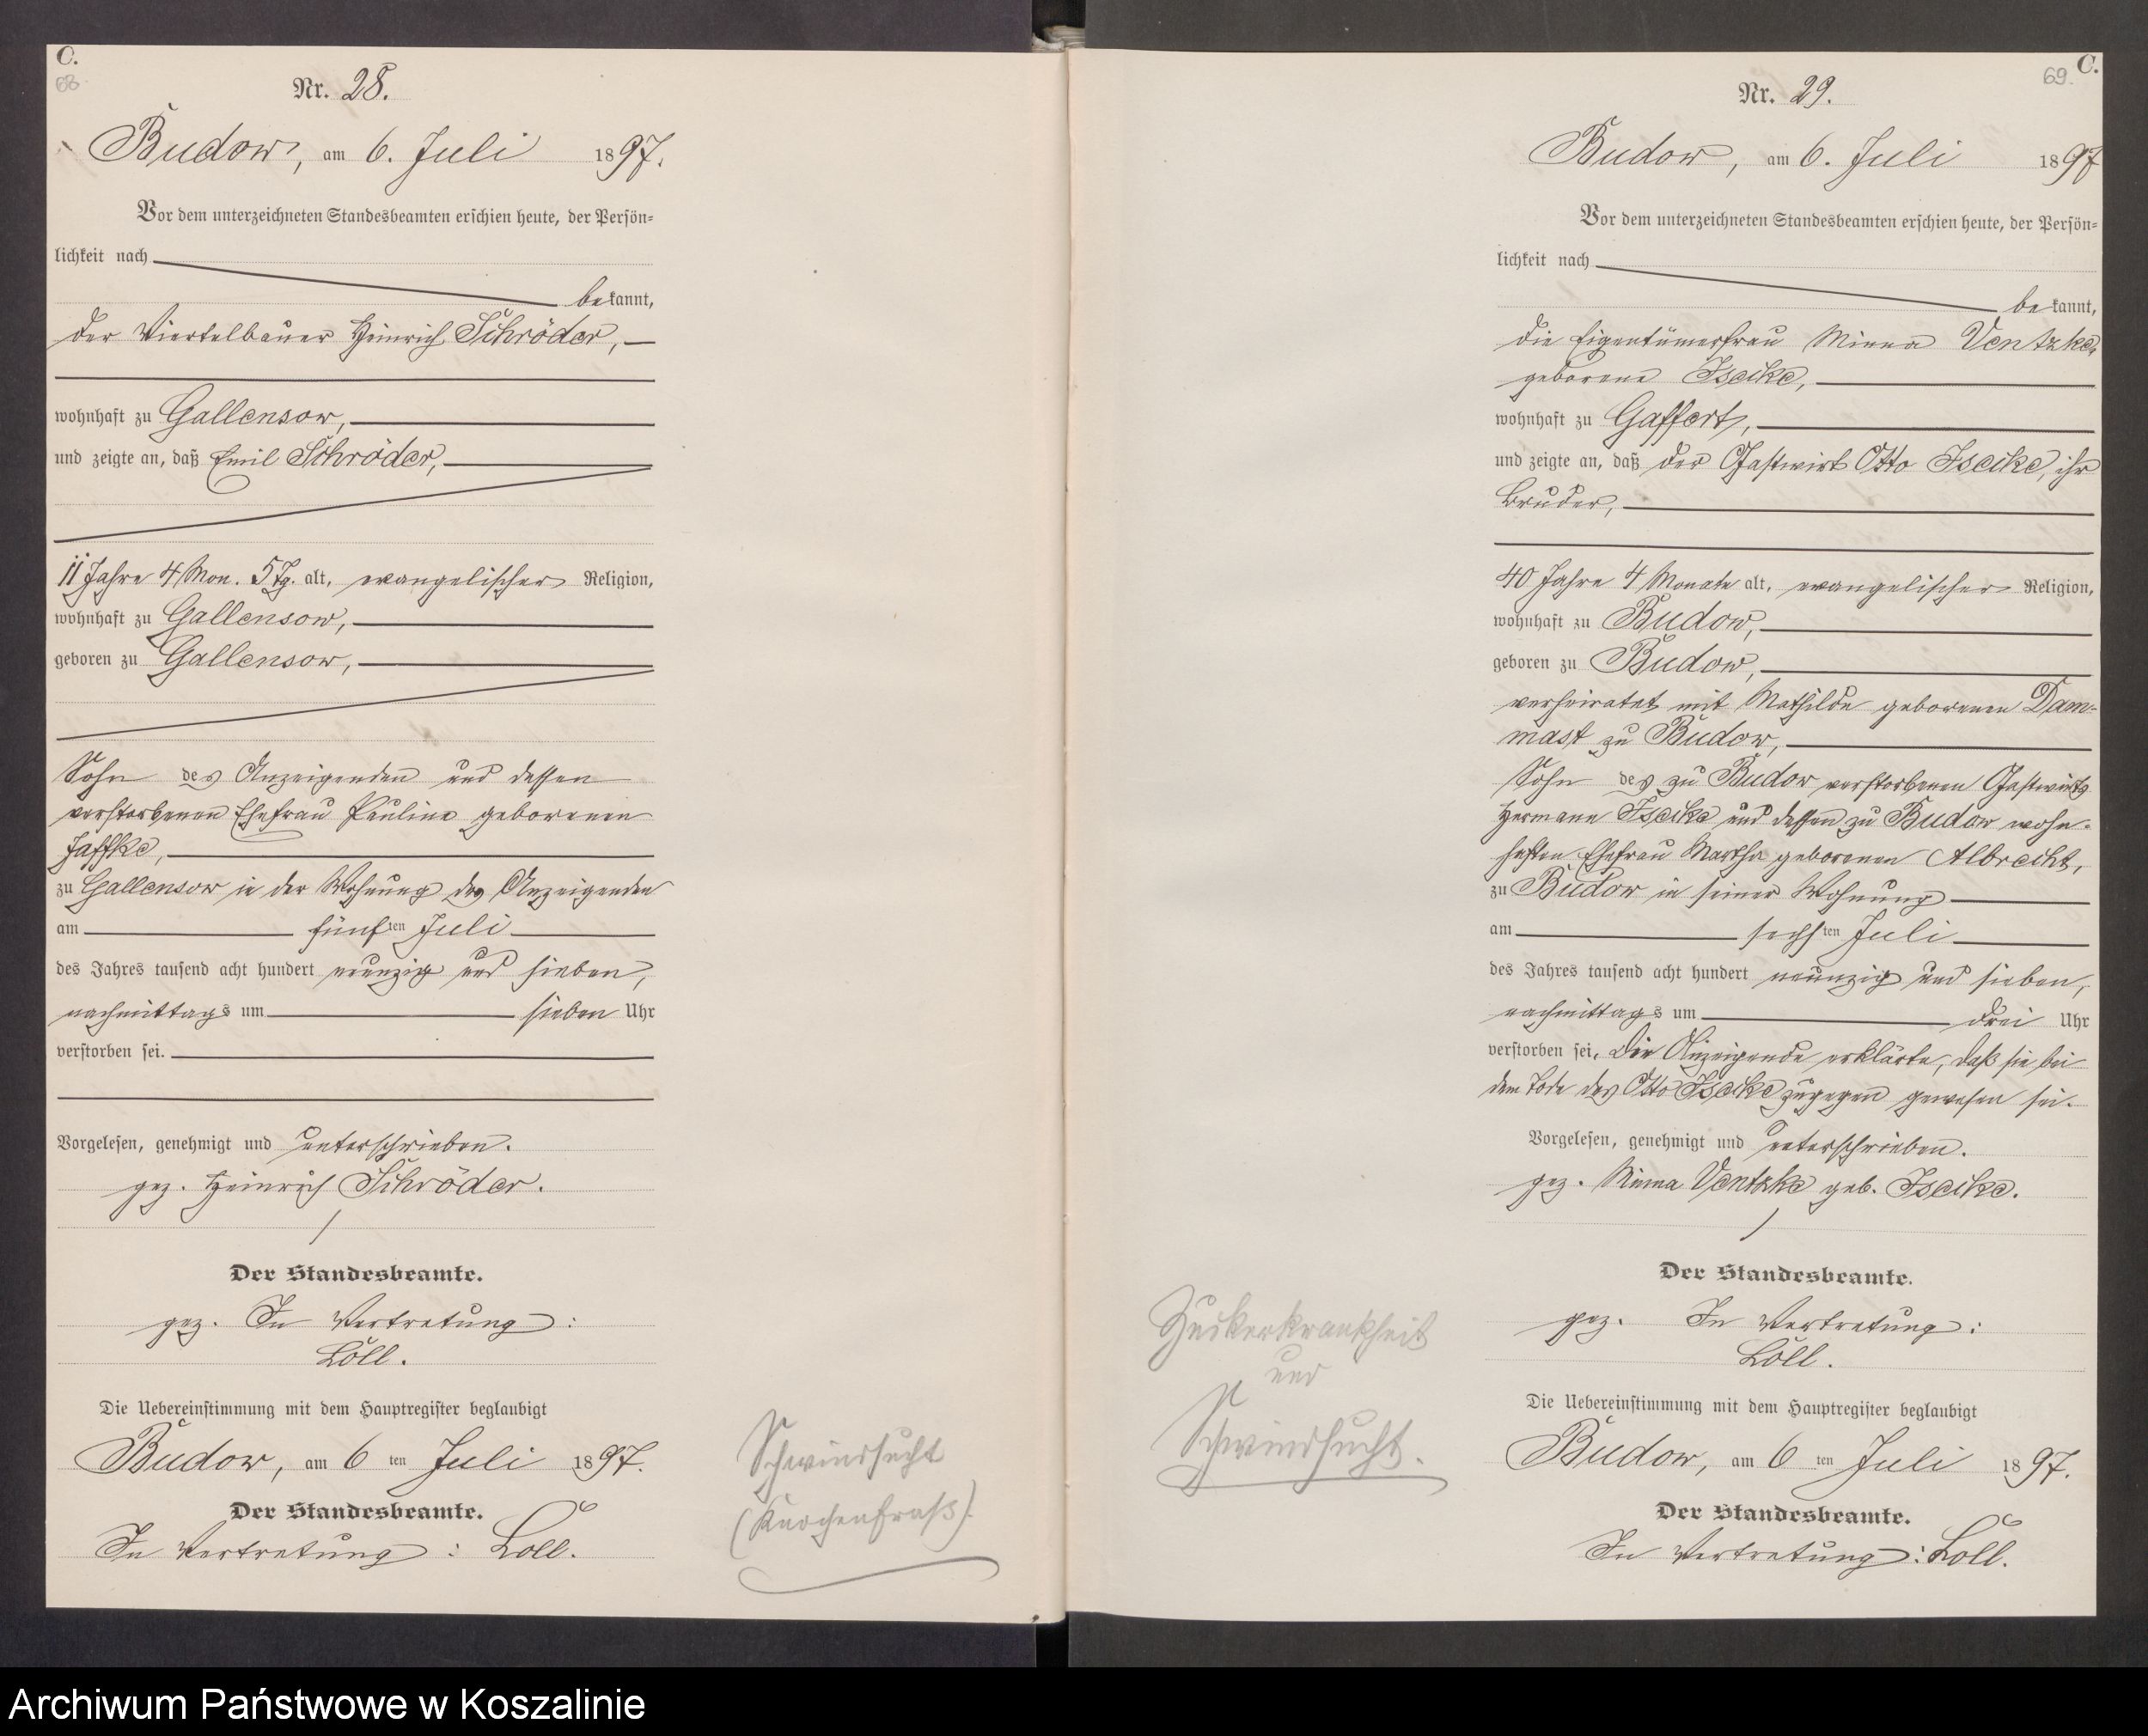 C.
68
Nr. 28.
Budow, am 6. Juli 1897.
Vor dem unterzeichneten Standesbeamten erschien heute, der Persön-
lichkeit nach
bekannt,
der Viertelbauer Heinrich Schröder,
wohnhaft zu Gallensow,
und zeigte an, daß Emil Schröder,
11 Jahre 4 Mon. 5 Tg. alt, evangelischer Religion,
wohnhaft zu Gallensow,
geboren zu Gallensow,
Sohn des Anzeigenden und dessen
verstorbenen Ehefrau Pauline geborenen
Jaffke,
zu Gallensow in der Wohnung des Anzeigenden
am fünften Juli
des Jahres tausend acht hundert neunzig und sieben,
nachmittags um sieben Uhr
verstorben sei.
Vorgelesen, genehmigt und unterschrieben.
gez. Heinrich Schröder.
Der Standesbeamte.
gez. In Vertretung:
Löll.
Die Uebereinstimmung mit dem Hauptregister beglaubigt
Budow, am 6 ten Juli 1897.
Der Standesbeamte.
In Vertretung: Löll.
Schwindsucht
(Knochenfraß).
C.
69.
Nr. 29.
Budow, am 6. Juli 1897
Vor dem unterzeichneten Standesbeamten erschien heute, der Persön-
lichkeit nach
bekannt,
die Eigentümerfrau Minna Ventzke,
geborene Isecke,
wohnhaft zu Gaffert,
und zeigte an, daß der Gastwirt Otto Isecke, ihr
Bruder,
40 Jahre 4 Monate alt, evangelischer Religion,
wohnhaft zu Budow,
geboren zu Budow,
verheiratet mit Mathilde geborenen Dam-
mast zu Budow,
Sohn des zu Budow verstorbenen Gastwirts
Hermann Isecke und dessen zu Budow wohn-
haften Ehefrau Martha geborenen Albrecht,
zu Budow in seiner Wohnung
am sechsten Juli
des Jahres tausend acht hundert neunzig und sieben,
nachmittags um drei Uhr
verstorben sei. Die Anzeigende erklärte, daß sie bei
dem Tode des Otto Isecke zugegen gewesen sei.
Vorgelesen, genehmigt und unterschrieben.
gez. Minna Ventzke geb. Isecke.
Der Standesbeamte.
gez. In Vertretung:
Löll.
Die Uebereinstimmung mit dem Hauptregister beglaubigt
Budow, am 6 ten Juli 1897.
Der Standesbeamte.
In Vertretung: Löll.
Zuckerkrankheit
und
Schwindsucht.
Archiwum Państwowe w Koszalinie